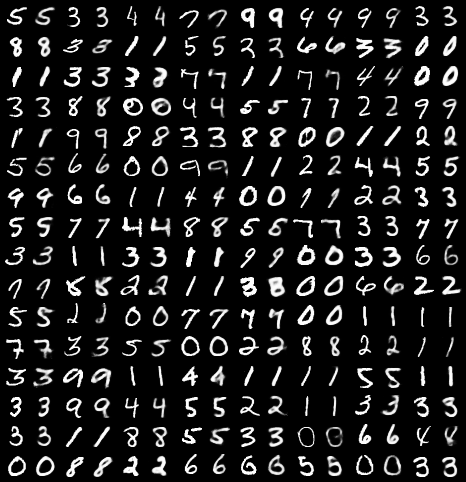 5 5 3 3 4 4 7 7 9 9 9 9 9 9 3 3
8 8 3 5 1 1 5 5 2 2 6 6 3 3 0 0
1 1 3 3 3 8 7 7 1 1 7 7 4 4 0 0
3 3 8 8 0 0 4 4 5 5 7 7 2 2 9 9
1 1 9 9 8 8 3 3 8 8 0 0 1 1 2 2
5 5 6 6 0 0 9 9 1 1 2 2 4 4 5 5
9 9 6 6 1 1 4 4 0 0 1 1 2 2 3 3
5 5 7 7 4 4 8 8 5 5 7 7 3 3 7 7
3 3 1 1 3 3 1 1 9 9 0 0 3 3 6 6
1 1 8 8 2 2 1 1 3 8 0 0 6 6 2 2
5 5 2 2 0 0 7 7 7 7 0 0 1 1 1 1
7 7 3 3 5 5 0 0 2 2 8 8 2 2 1 1
3 3 9 9 1 1 4 4 1 1 1 1 5 5 1 1
3 3 9 9 4 4 5 5 2 2 1 1 3 3 3 3
3 3 1 1 8 8 5 5 3 3 0 0 6 6 4 4
0 0 8 8 2 2 6 6 6 6 5 5 0 0 3 3